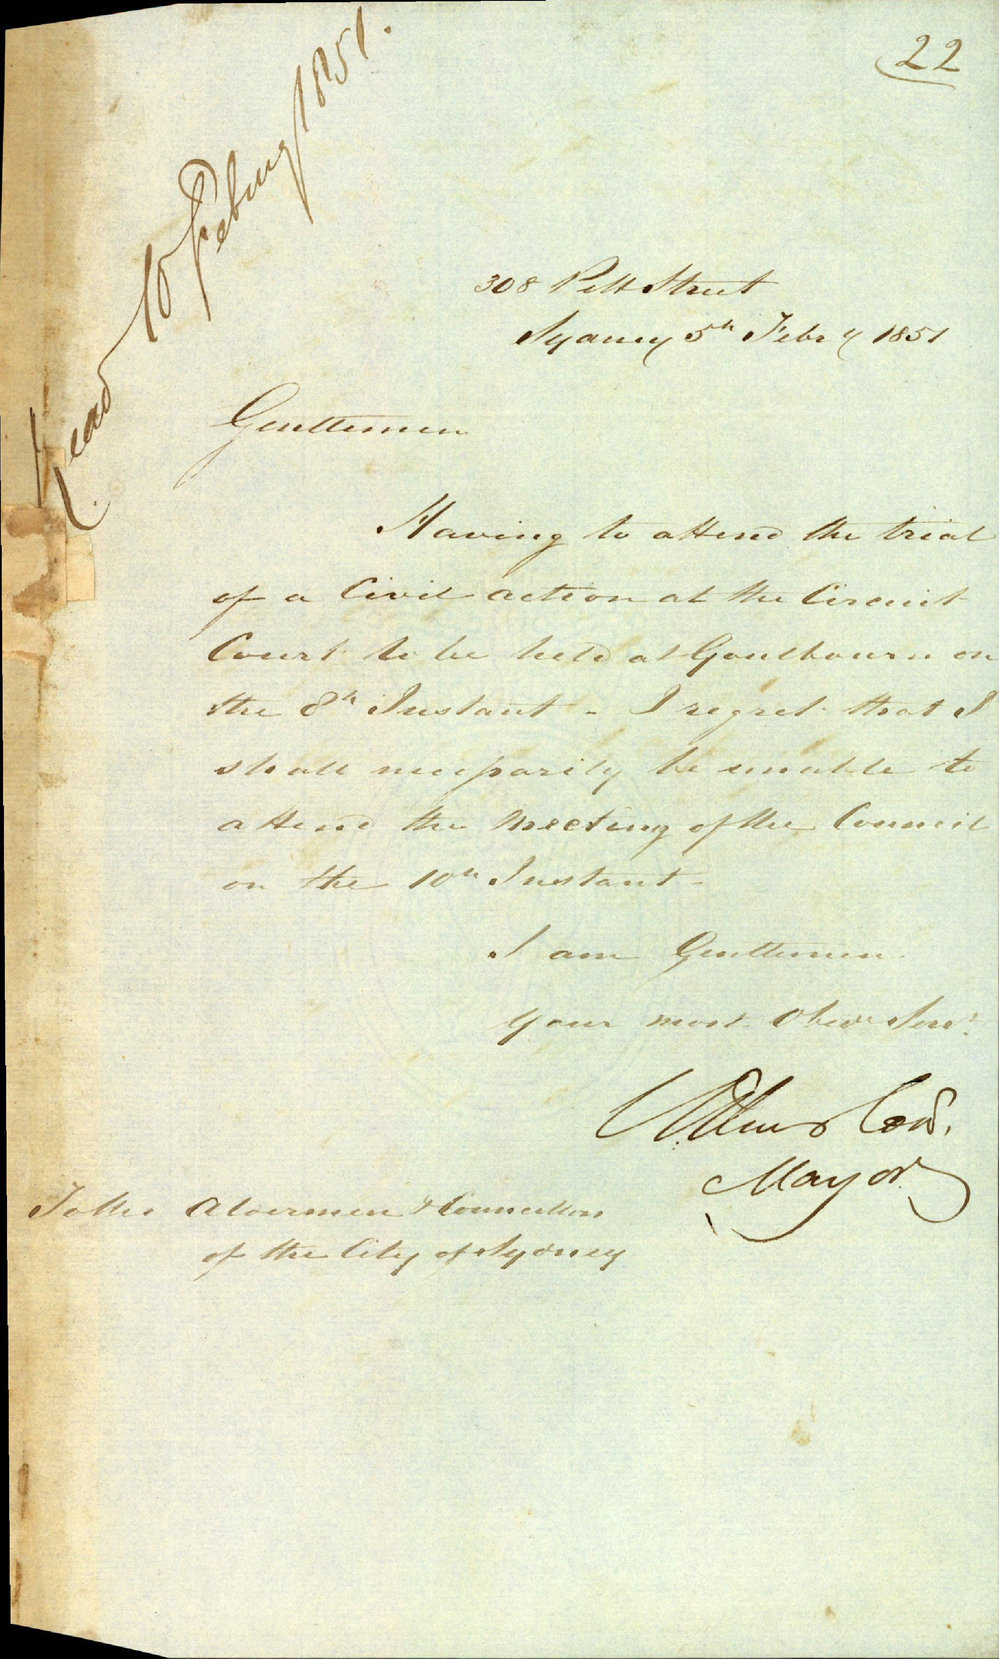 22
Read 10 Febury 1851.
308 Pitt Street
Sydney 5th Feby 1851
Gentlemen
Having to attend the trial
of a Civil action at the Circuit
Court to be held at Goulbourn on
the 8th Instant - I regret that I
shall necessarily be unable to
attend the Meeting of the Council
on the 10th Instant -
I am Gentlemen
Your most Obedt Servt
Mayor
To the Aldermen & Councillors
of the City of Sydney